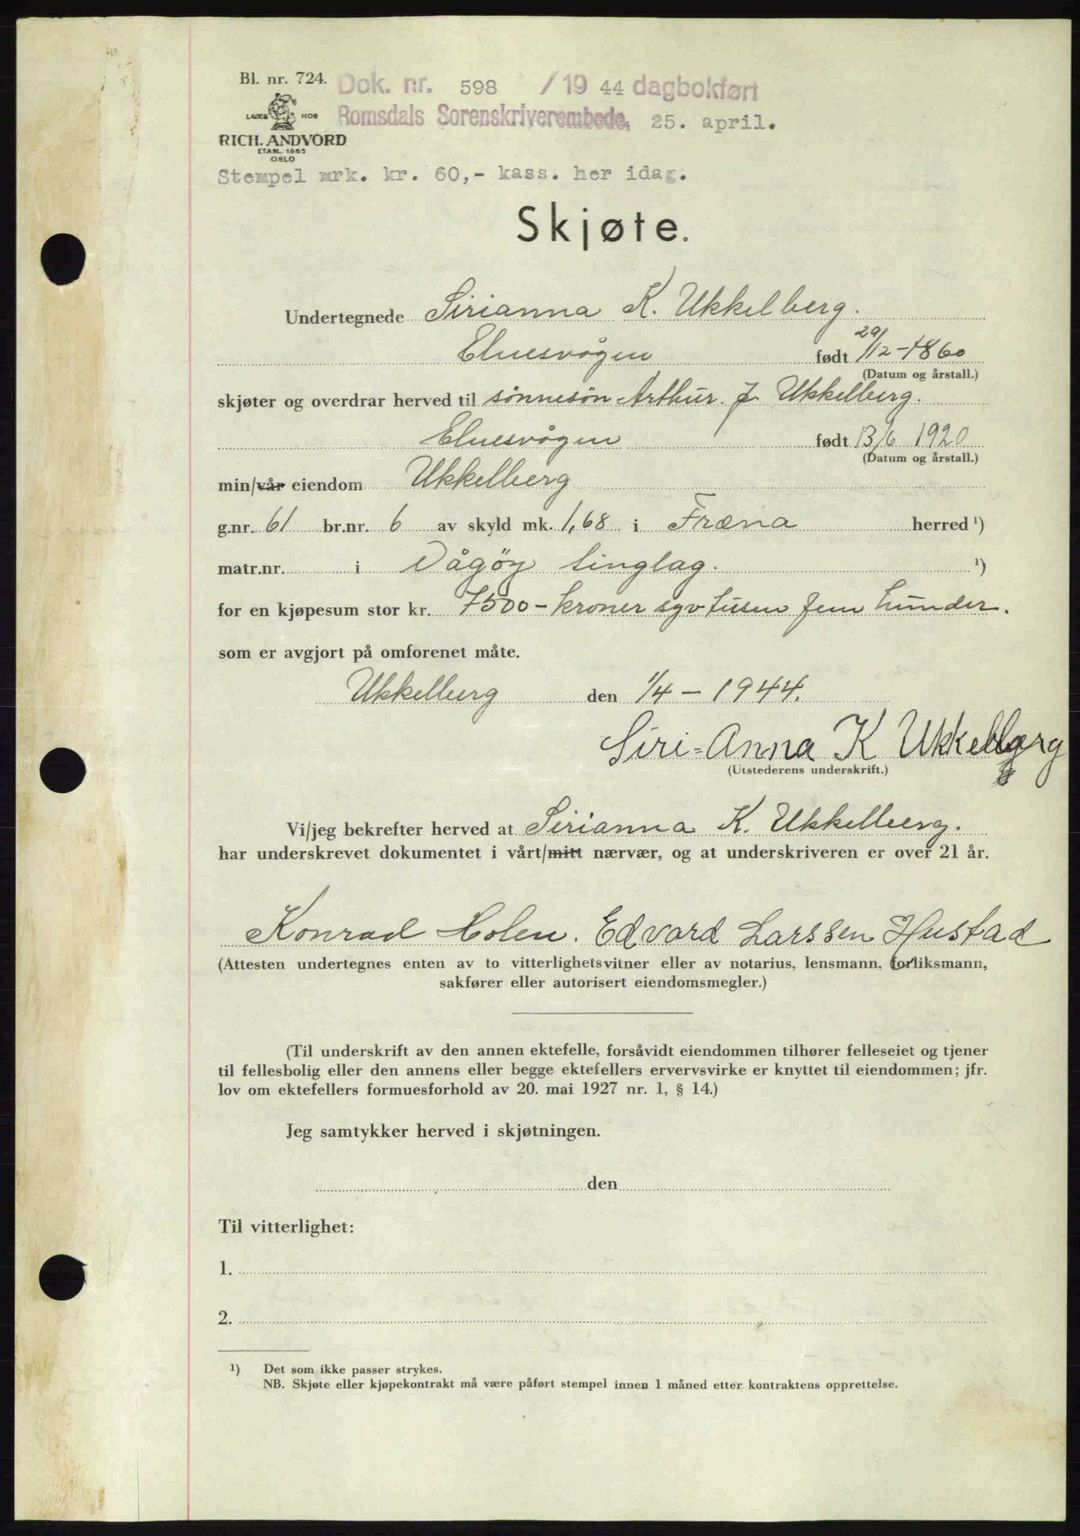 Bl. nr. 724. Dok. nr. 598 /19 44 dagbokført
LAGER HOS Romsdals Sorenskriverembede, 25. april.
RICH. ANDVORD
ETABL. 1865
OSLO
Stempel mrk. kr. 60,- kass. her idag.
Skjøte.
Undertegnede Sirianna K. Ukkelberg.
Elnesvågen født 29/12-1860
(Datum og årstall.)
skjøter og overdrar herved til sønnesøn Arthur J. Ukkelberg.
Elnesvågen født 13/6 1920
(Datum og årstall.)
min/vår eiendom Ukkelberg
g.nr. 61 br.nr. 6 av skyld mk. 1,68 i Fræna herred ¹)
matr.nr. i Vågøy tinglag. ¹)
for en kjøpesum stor kr. 7500- kroner syvtusen fem hunder.
som er avgjort på omforenet måte.
Ukkelberg den 1/4 - 1944.
Siri=Anna K Ukkelberg
(Utstederens underskrift.)
Vi/jeg bekrefter herved at Sirianna K. Ukkelberg.
har underskrevet dokumentet i vårt/mitt nærvær, og at underskriveren er over 21 år.
Konrad Holen. Edvard Larssen Hustad
(Attesten undertegnes enten av to vitterlighetsvitner eller av notarius, lensmann, forliksmann,
sakfører eller autorisert eiendomsmegler.)
(Til underskrift av den annen ektefelle, forsåvidt eiendommen tilhører felleseiet og tjener
til fellesbolig eller den annens eller begge ektefellers ervervsvirke er knyttet til eiendommen; jfr.
lov om ektefellers formuesforhold av 20. mai 1927 nr. 1, § 14.)
Jeg samtykker herved i skjøtningen.
den
Til vitterlighet:
1.
2.
¹) Det som ikke passer strykes.
NB. Skjøte eller kjøpekontrakt må være påført stempel innen 1 måned etter kontraktens opprettelse.